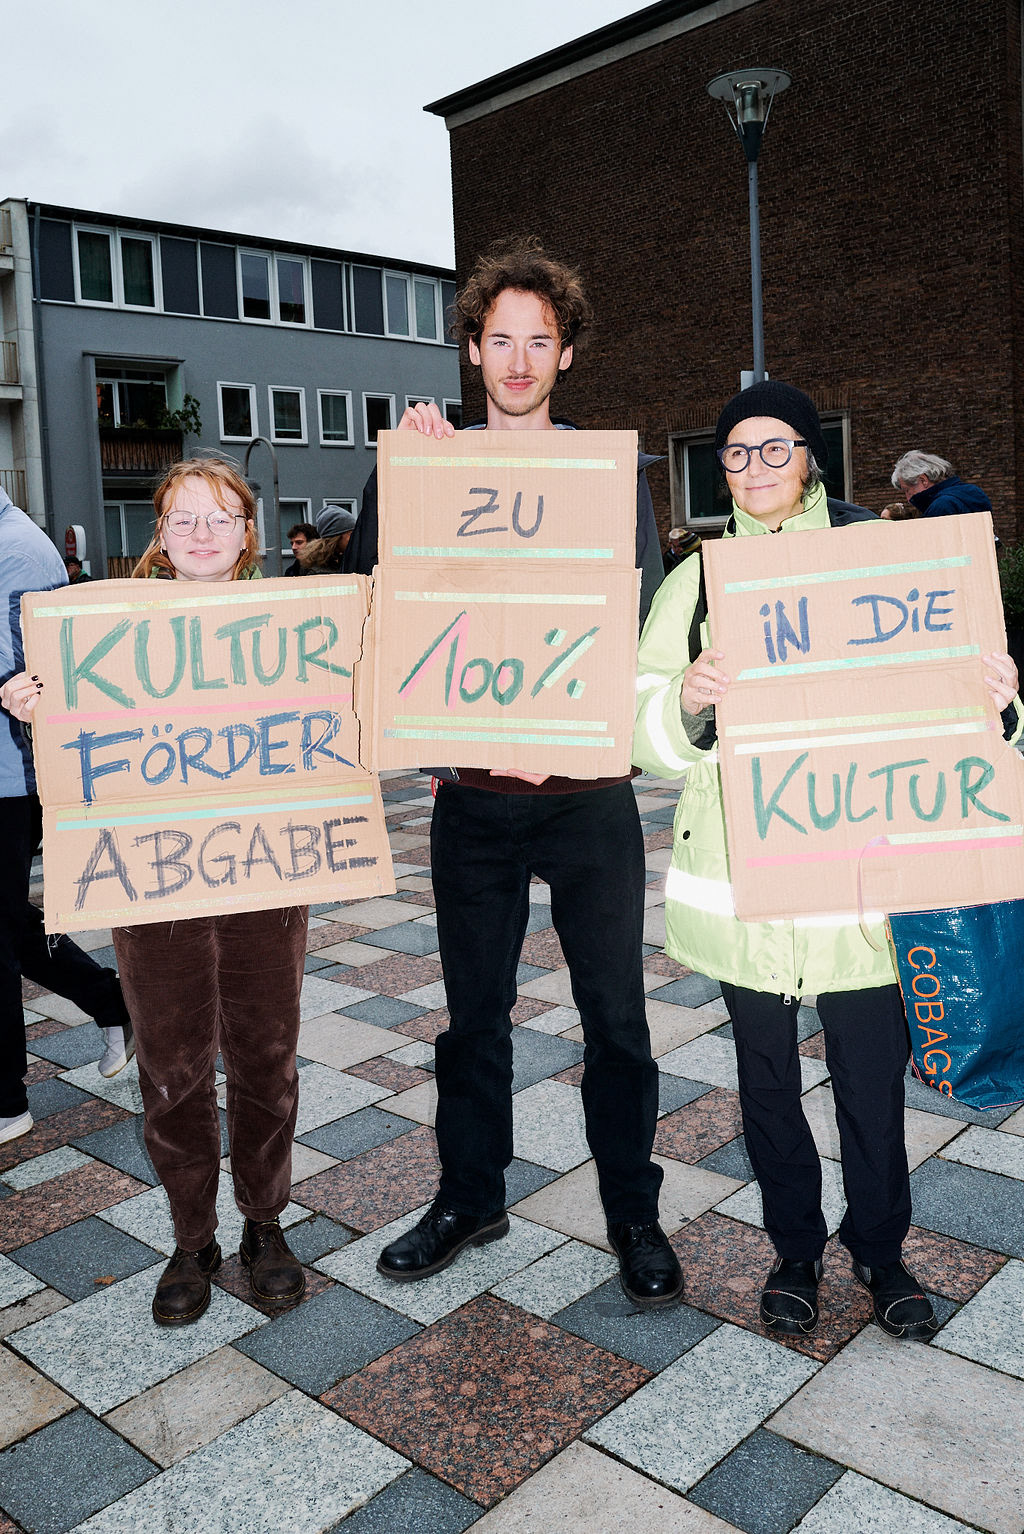 KULTUR
FÖRDER
ABGABE
ZU
100%
iN DiE
KULTUR
COBAGS